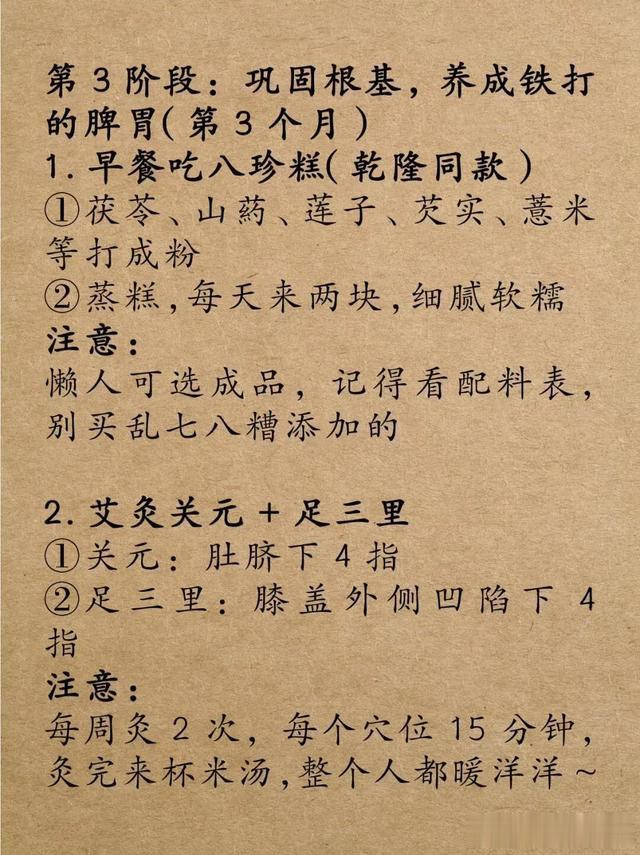 第3阶段：巩固根基，养成铁打
的脾胃(第3个月)
1.早餐吃八珍糕(乾隆同款)
①茯苓、山药、莲子、芡实、薏米
等打成粉
②蒸糕,每天来两块,细腻软糯
注意：
懒人可选成品，记得看配料表，
别买乱七八糟添加的
2.艾灸关元+足三里
①关元：肚脐下4指
②足三里：膝盖外侧凹陷下4
指
注意：
每周灸2次，每个穴位15分钟，
灸完来杯米汤,整个人都暖洋洋~